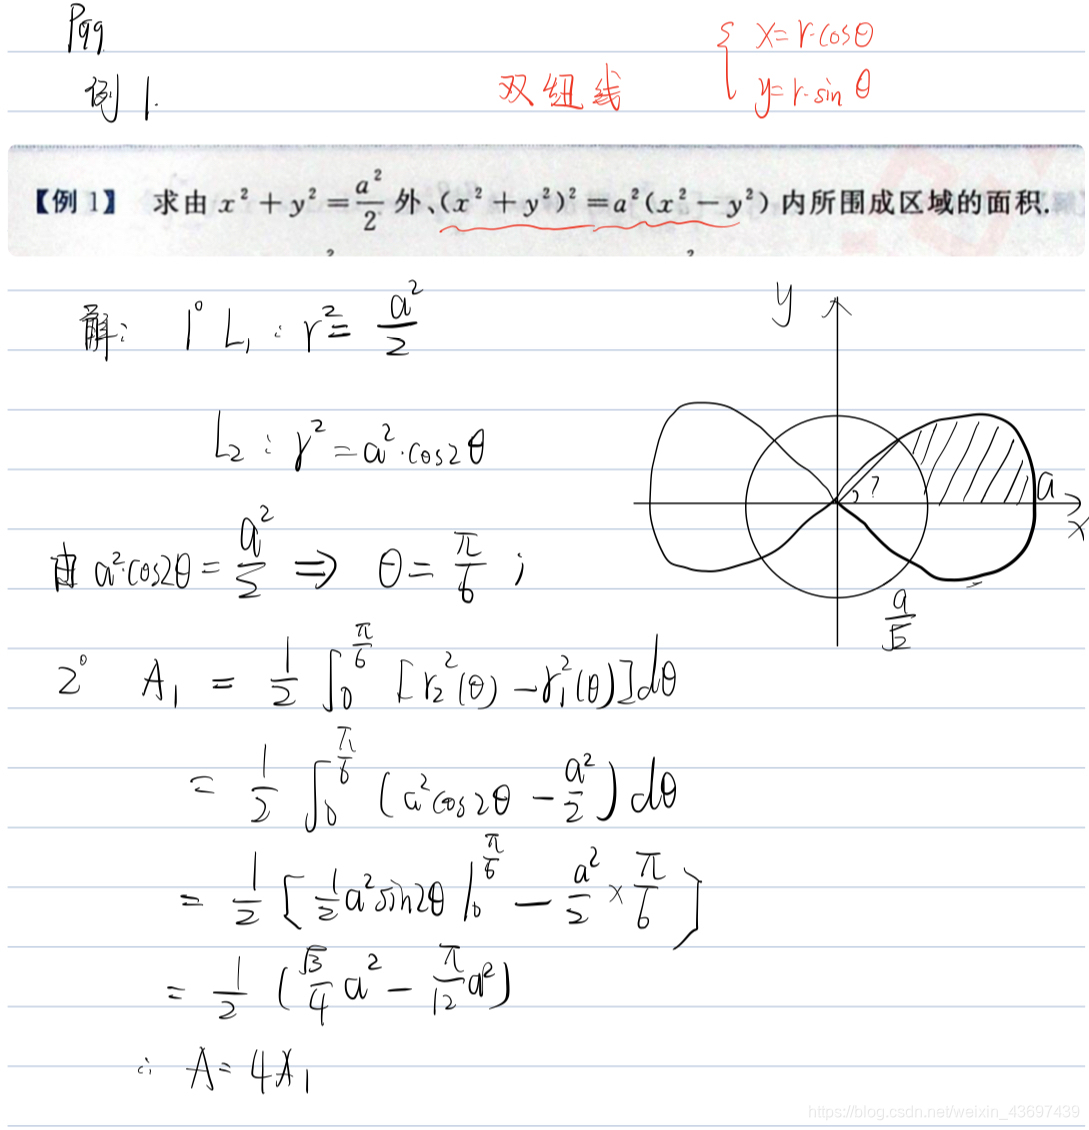 P99
例1.
双纽线 { x=r·cosθ
y=r·sinθ
【例1】 求由 x²+y²=a²/2 外、(x²+y²)²=a²(x²-y²) 内所围成区域的面积.
解: 1° L₁: r²= a²/2
L₂: r²=a²·cos2θ
由 a²·cos2θ= a²/2 ⇒ θ= π/6 ;
y
?
a
x
a/√2
2° A₁ = 1/2 ∫₀^(π/6) [r₂²(θ) - r₁²(θ)]dθ
= 1/2 ∫₀^(π/6) (a²cos2θ - a²/2) dθ
= 1/2 [ 1/2 a²sin2θ |₀^(π/6) - a²/2 × π/6 ]
= 1/2 ( √3/4 a² - π/12 a²)
∴ A= 4A₁
https://blog.csdn.net/weixin_43697439